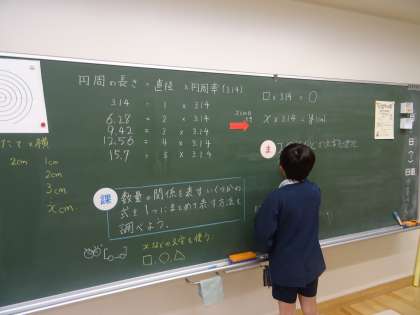 円周の長さ = 直径 × 円周率(3.14)
3.14 = 1 × 3.14
6.28 = 2 × 3.14
9.42 = 3 × 3.14
12.56 = 4 × 3.14
15.7 = 5 × 3.14
□×3.14 = ○
x × 3.14 = y
たて × 横
2cm 1cm
2cm
3cm
xcm
ま
課
数量の関係を表すいくつかの
式を1つにまとめて表す方法を
調べよう。
xなどの文字を使う
□, ○, △